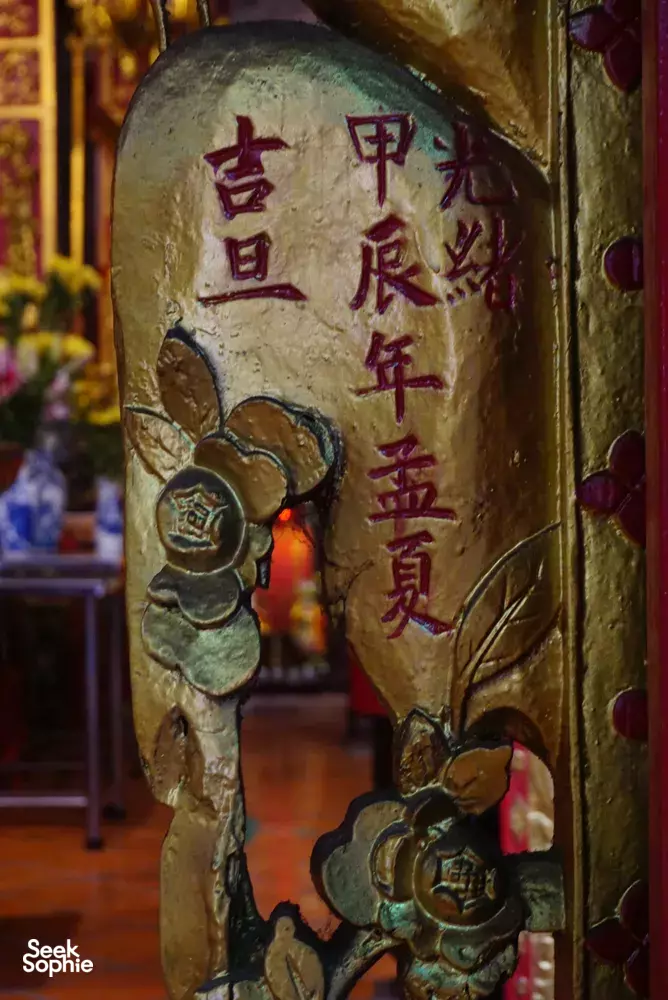 光緒
甲辰年孟夏
吉旦
Seek
Sophie